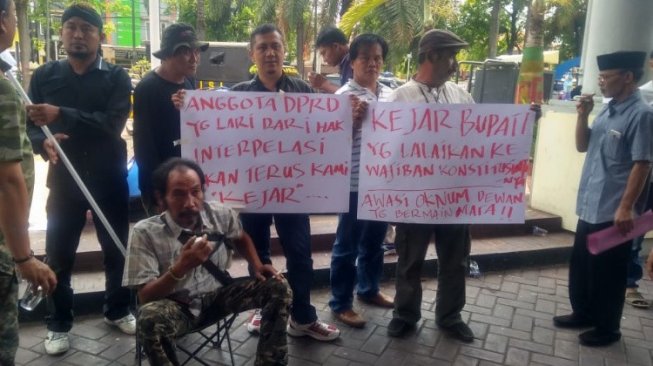 ANGGOTA DPRD
YG LARI DARI HAK
INTERPELASI
AKAN TERUS KAMI
"KEJAR" ....
KEJAR BUPATI
YG LALAIKAN KE
WAJIBAN KONSTITUSI
NYA
AWASI OKNUM DEWAN
YG BERMAIN MATA !!